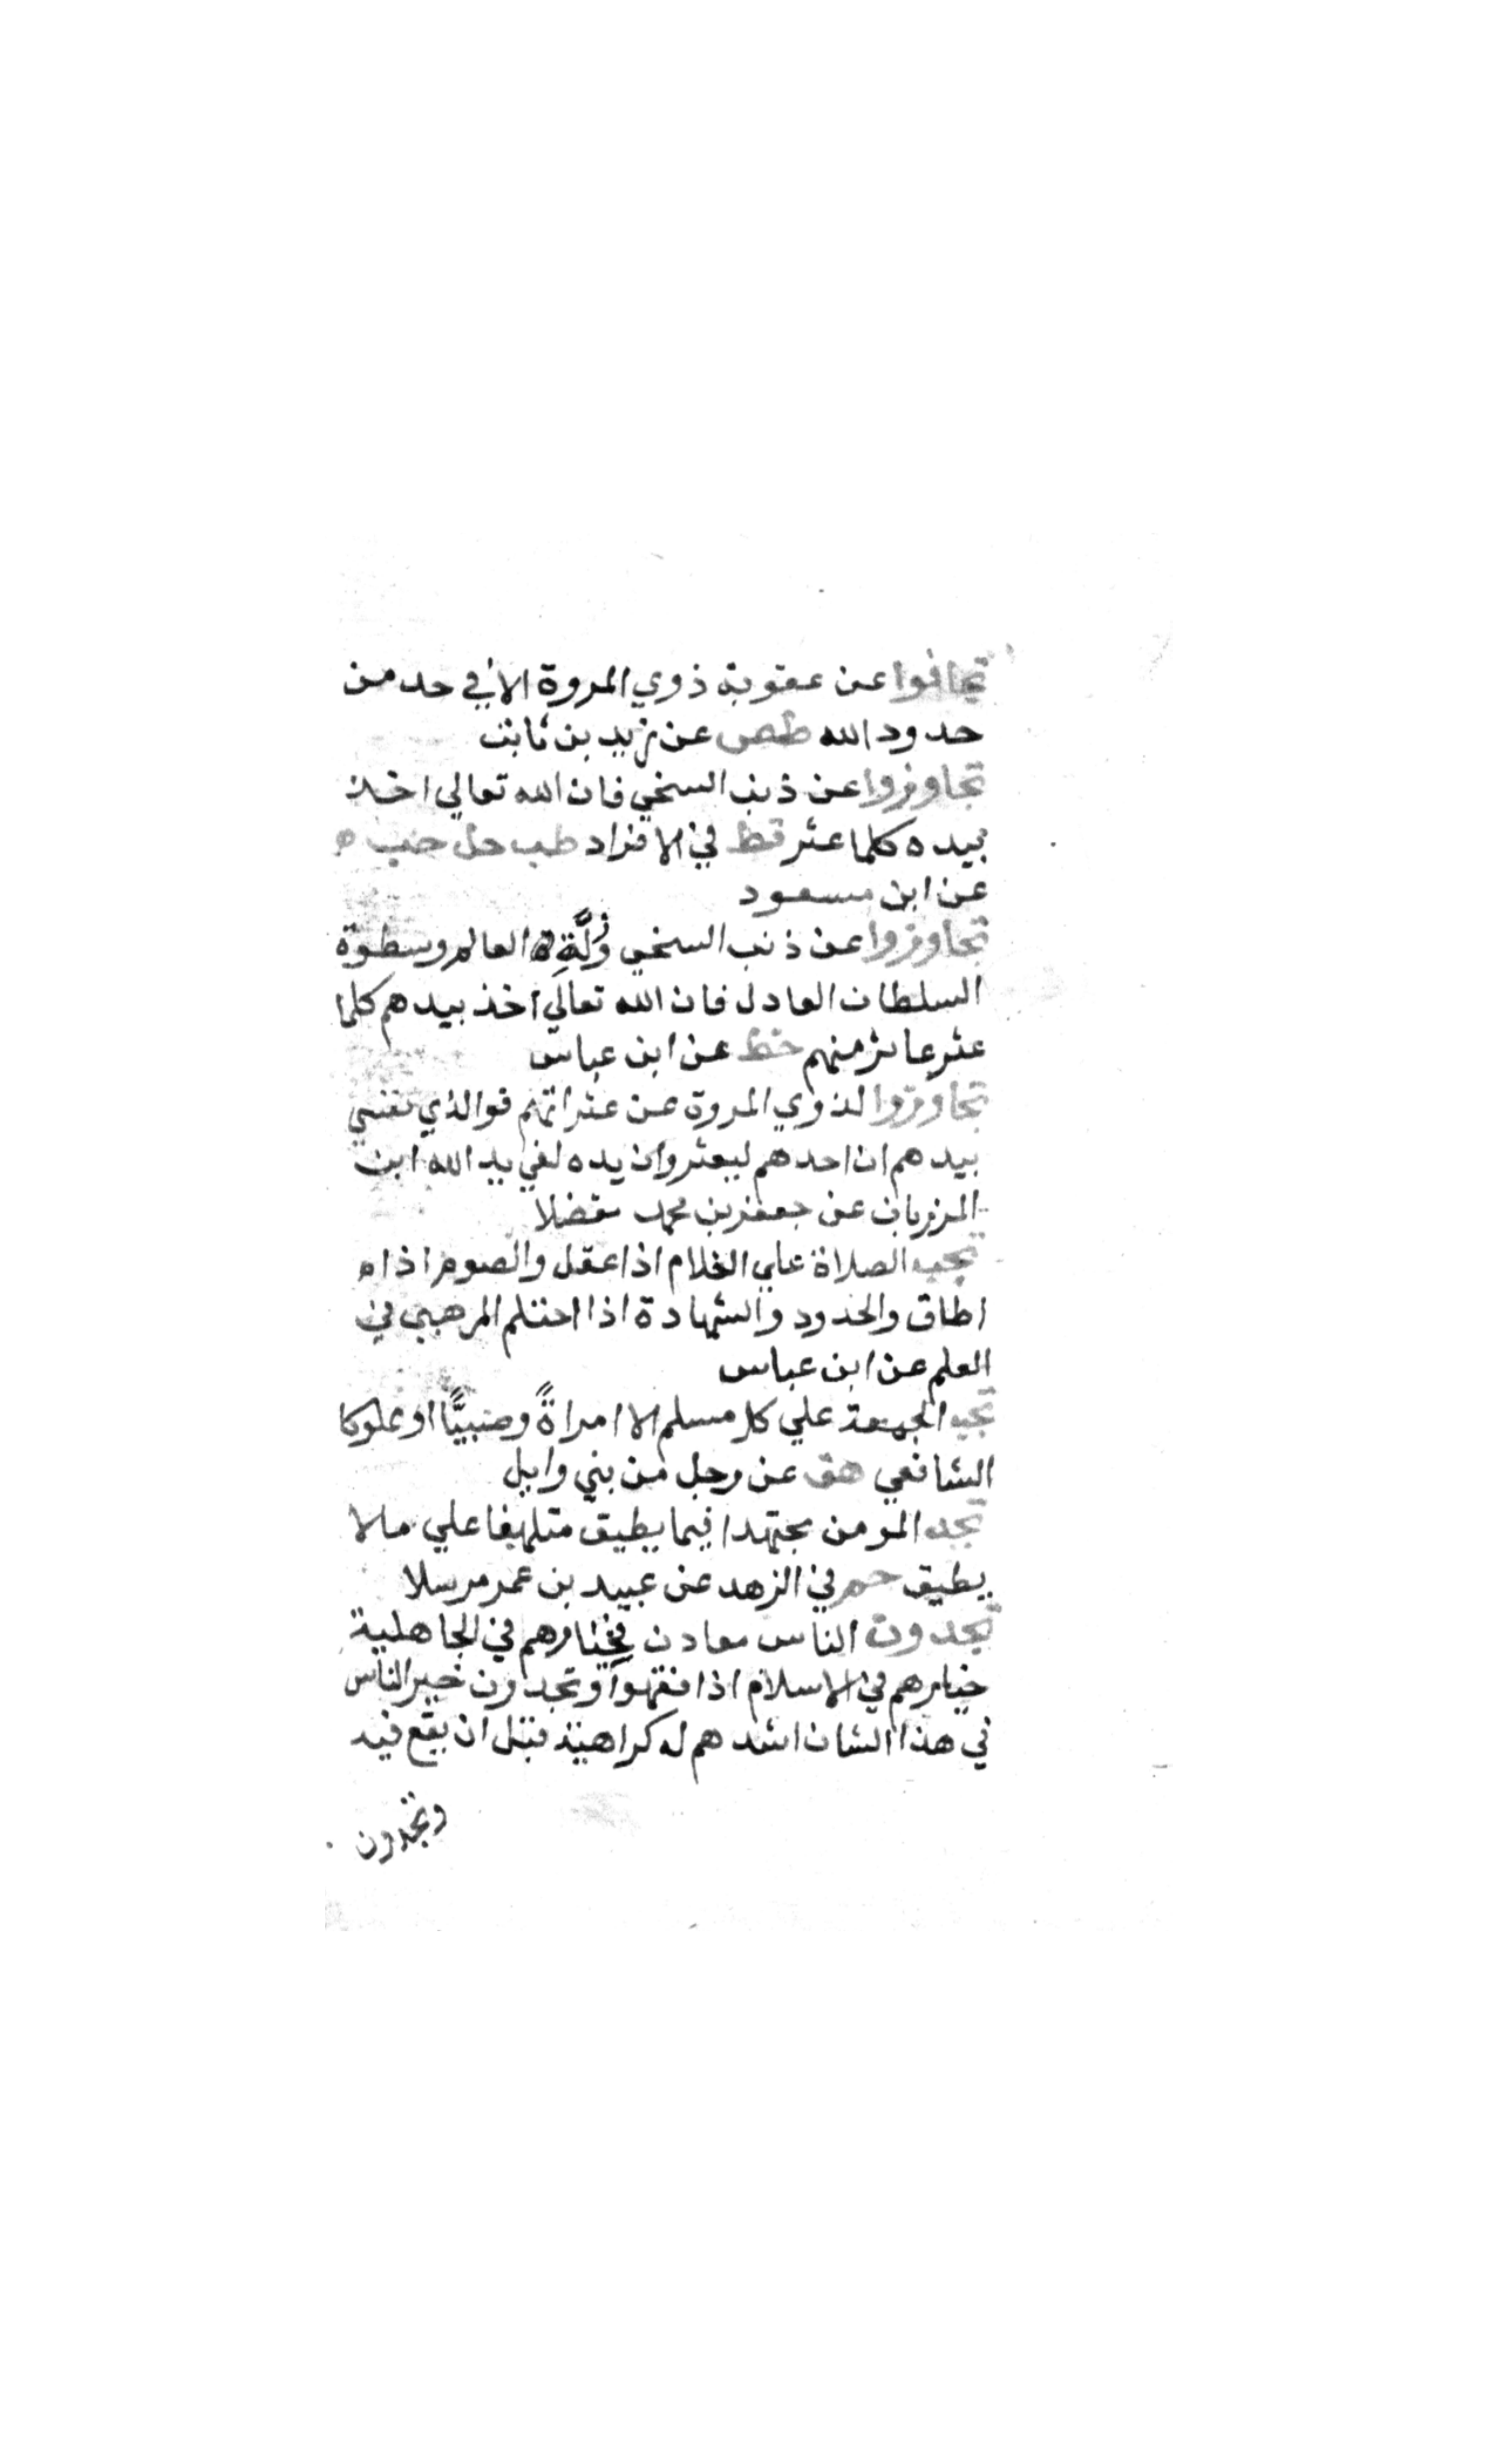 تجافوا عن عقوبة ذوي المروة الا في حد من
حدود الله طص عن زيد بن ثابت
تجاوزوا عن ذنب السخي فان الله تعالي اخذ
بيده كلما عثر قط في الافراد طب حل هب
عن ابن مسعود
تجاوزوا عن ذنب السخي وزلة العالم وسطوة
السلطان العادل فان الله تعالي اخذ بيدهم كلما
عثر عاثر منهم خط عن ابن عباس
تجاوزوا لذوي المروة عن عثراتهم فوالذي نفسي
بيدهم ان احدهم ليعثر وان يده لفي يد الله ابن
المرزبان عن جعفر بن محمد معضلا
تجب الصلاة علي الغلام اذا عقل والصوم اذا
اطاق والحدود والشهادة اذا احتلم المرهبي في
العلم عن ابن عباس
تجب الجمعة علي كل مسلم الا امراةً وصبيًّا او مملوكا
الشافعي هق عن رجل من بني وايل
تجد المومن مجتهدا فيما يطيق متلهفا علي ما لا
يطيق حم في الزهد عن عبيد بن عمر مرسلا
تجدون الناس معادن فخيارهم في الجاهلية
خيارهم في الاسلام اذا فقهوا وتجدون خير الناس
في هذا الشان اشدهم له كراهية قبل ان يقع فيه
وتجدون